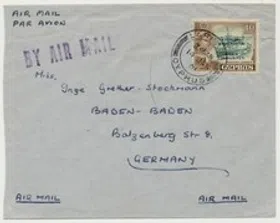 AIR MAIL
PAR AVION
BY AIR MAIL
CYPRUS
CYPRUS
Miss.
Inge Grether-Stockmann
BADEN-BADEN
Balzenberg Str 8,
GERMANY
AIR MAIL
AIR MAIL